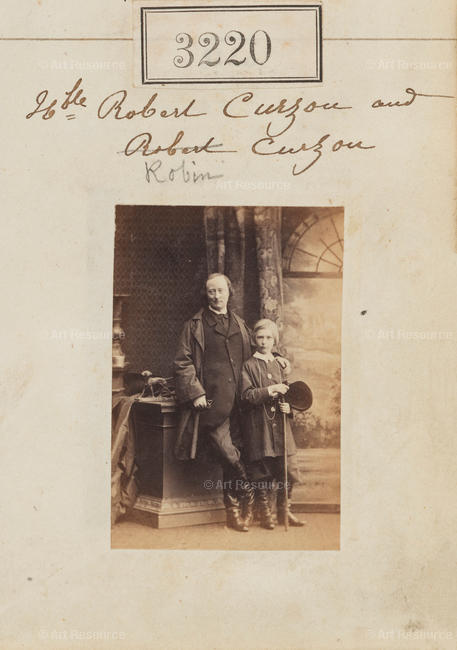 3220
Hble Robert Curzon and
Robert Curzon
Robin
© Art Resource
© Art Resource
© Art Resource
© Art Resource
© Art Resource
© Art Resource
© Art Resource
© Art Resource
© Art Resource
© Art Resource